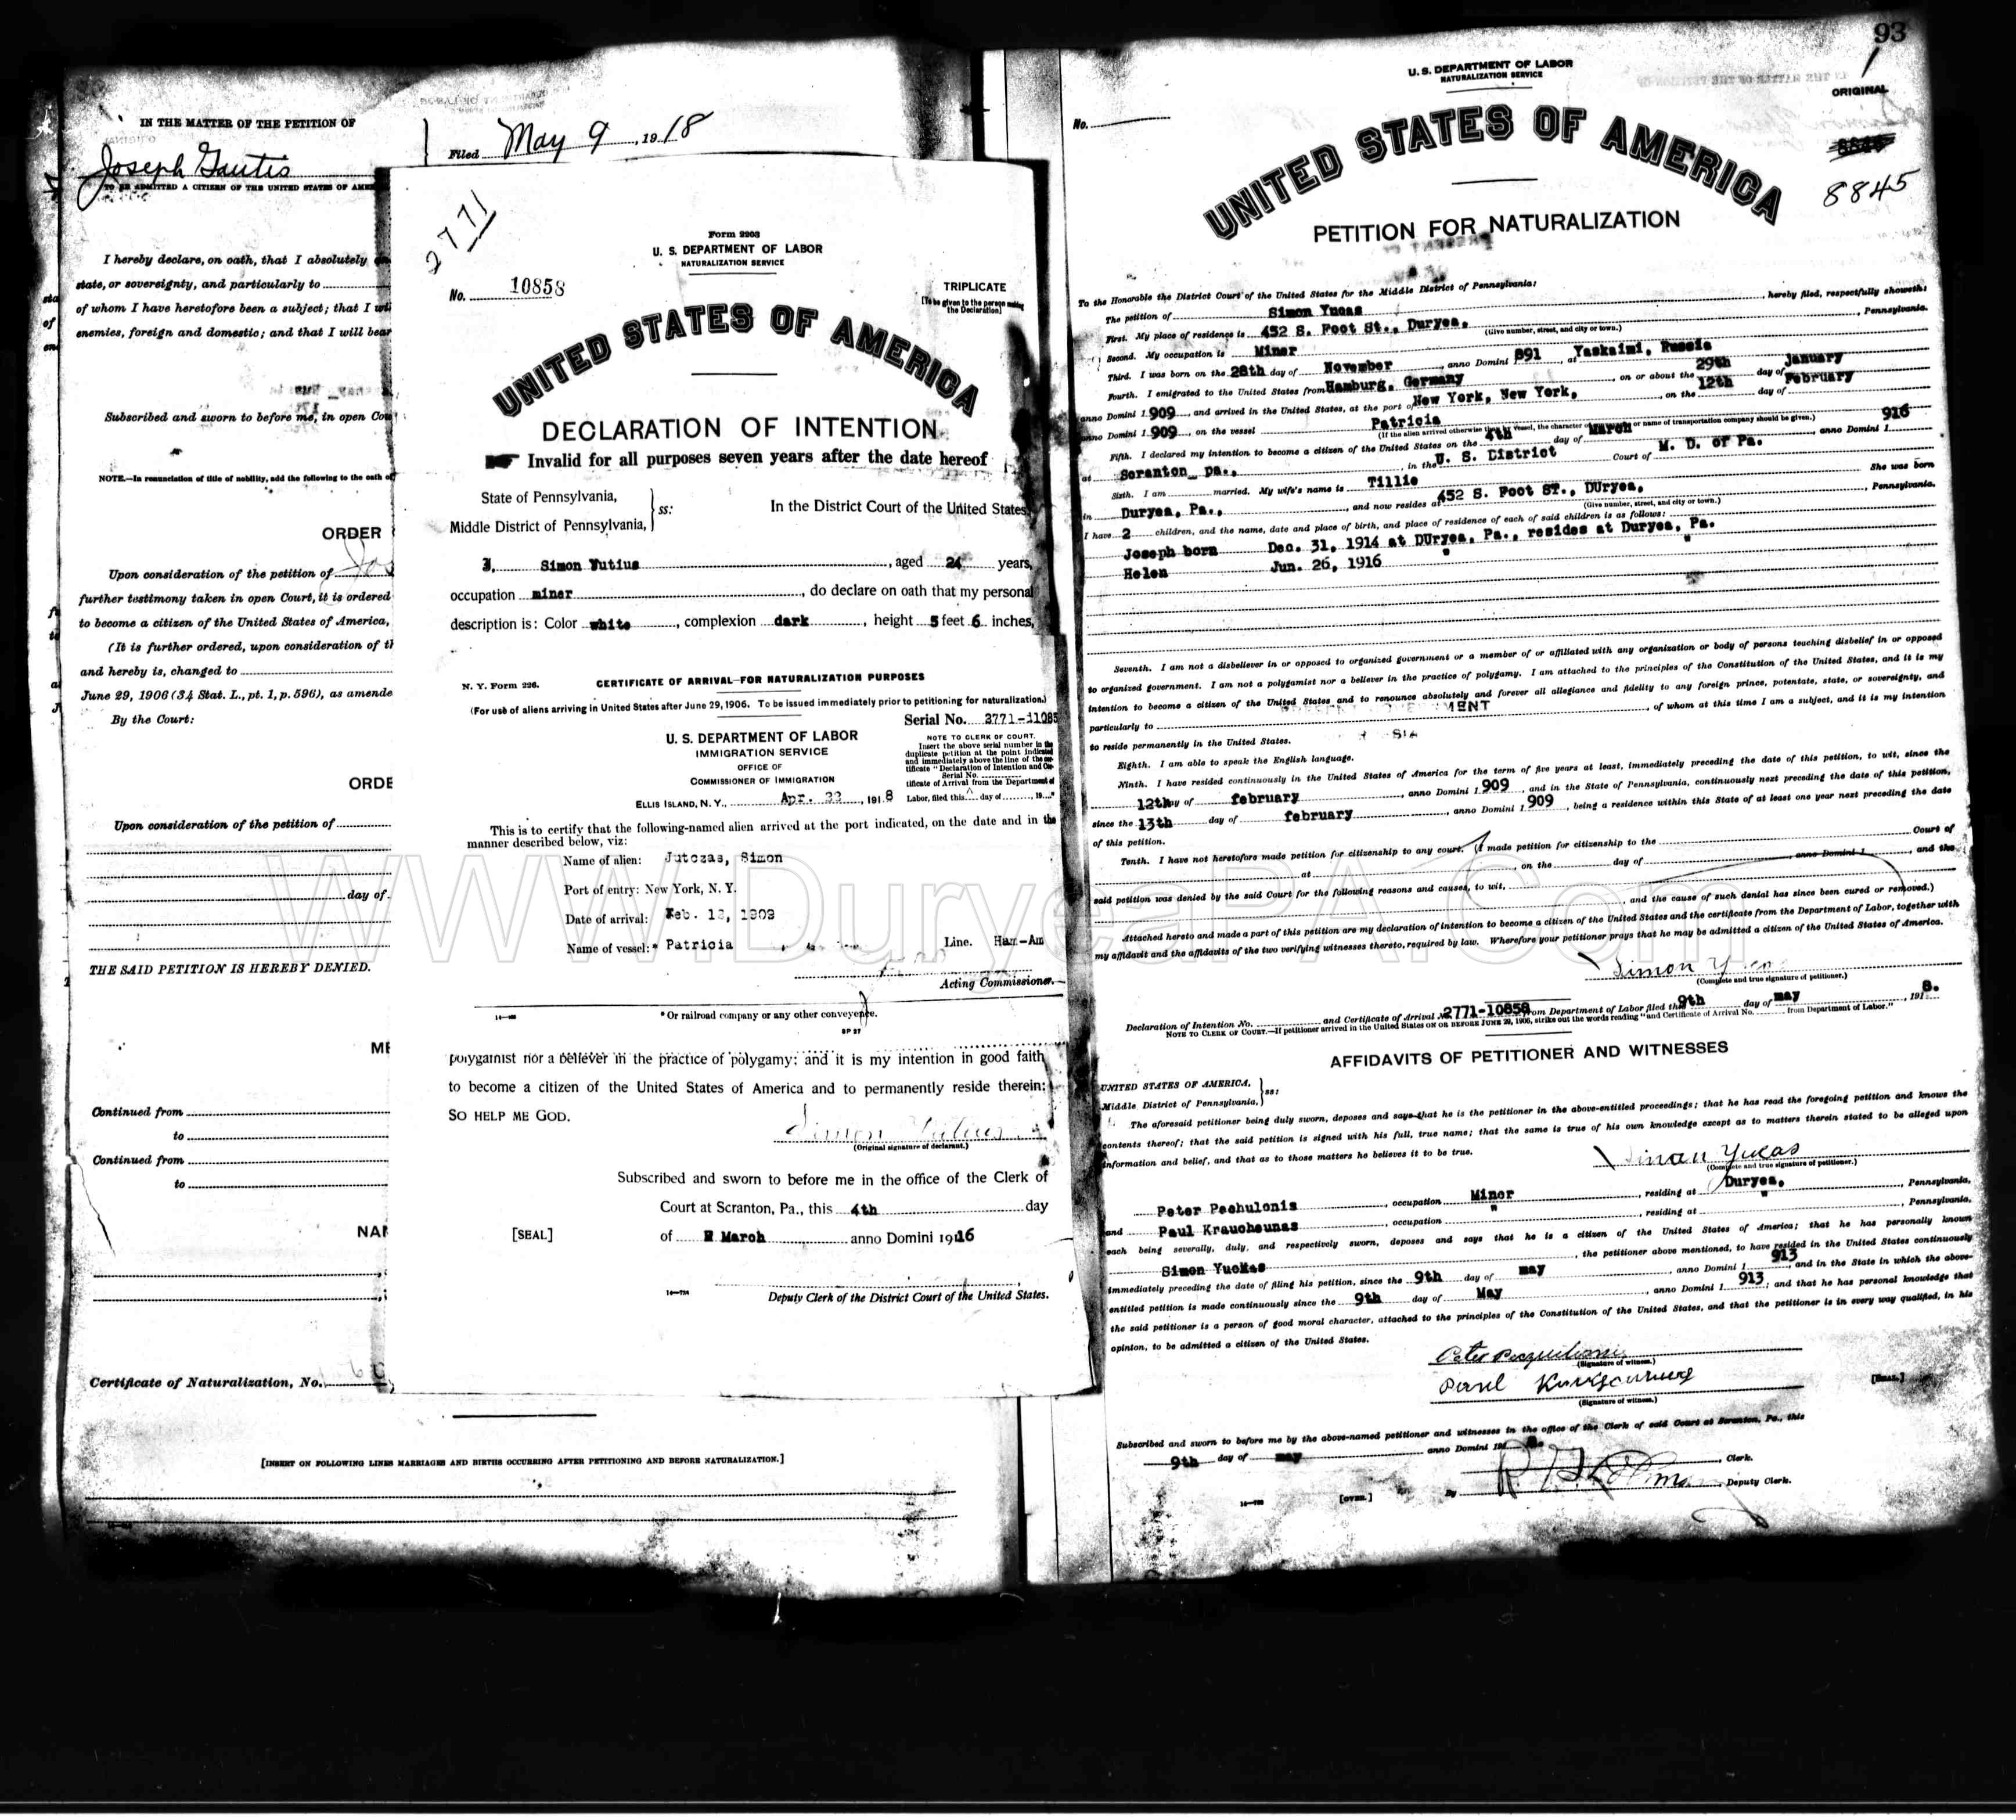 IN THE MATTER OF THE PETITION OF
Joseph Gautis
TO BE ADMITTED A CITIZEN OF THE UNITED STATES OF AME
Filed May 9, 1918
I hereby declare, on oath, that I absolutely
state, or sovereignty, and particularly to
of whom I have heretofore been a subject; that I wi
enemies, foreign and domestic; and that I will bear
Subscribed and sworn to before me, in open Cou
NOTE.—In renunciation of title of nobility, add the following to the oath of
ORDER
Upon consideration of the petition of Jos
further testimony taken in open Court, it is ordered
to become a citizen of the United States of America,
(It is further ordered, upon consideration of th
and hereby is, changed to
June 29, 1906 (34 Stat. L., pt. 1, p. 596), as amende
By the Court:
ORDE
Upon consideration of the petition of
day of
THE SAID PETITION IS HEREBY DENIED.
ME
Continued from
to
Continued from
to
NAM
Certificate of Naturalization, No.
[INSERT ON FOLLOWING LINES MARRIAGES AND BIRTHS OCCURRING AFTER PETITIONING AND BEFORE NATURALIZATION.]
2771
Form 2203
U. S. DEPARTMENT OF LABOR
NATURALIZATION SERVICE
No. 10858
TRIPLICATE
[To be given to the person making the Declaration]
UNITED STATES OF AMERICA
DECLARATION OF INTENTION
Invalid for all purposes seven years after the date hereof
State of Pennsylvania,
Middle District of Pennsylvania,
ss:
In the District Court of the United States,
I, Simon Yutius, aged 24 years,
occupation miner, do declare on oath that my personal
description is: Color white, complexion dark, height 5 feet 6 inches,
N. Y. Form 226.
CERTIFICATE OF ARRIVAL—FOR NATURALIZATION PURPOSES
(For use of aliens arriving in United States after June 29, 1906. To be issued immediately prior to petitioning for naturalization.)
Serial No. 2771-11085
U. S. DEPARTMENT OF LABOR
IMMIGRATION SERVICE
OFFICE OF
COMMISSIONER OF IMMIGRATION
NOTE TO CLERK OF COURT.
Insert the above serial number in the
duplicate petition at the point indicated
and immediately above the line of the cer-
tificate "Declaration of Intention and Cer-
Serial No.
tificate of Arrival from the Department of
Labor, filed this day of , 19 ."
ELLIS ISLAND, N. Y., Apr. , 1918
This is to certify that the following-named alien arrived at the port indicated, on the date and in the
manner described below, viz:
Name of alien: Jutczas, Simon
Port of entry: New York, N. Y.
Date of arrival: Feb. 12, 1909
Name of vessel:* Patricia Line. Ham-Am
Acting Commissioner.
*Or railroad company or any other conveyence.
polygamist nor a believer in the practice of polygamy; and it is my intention in good faith
to become a citizen of the United States of America and to permanently reside therein:
SO HELP ME GOD.
Simon Yutius
(Original signature of declarant.)
Subscribed and sworn to before me in the office of the Clerk of
Court at Scranton, Pa., this 4th day
[SEAL] of March anno Domini 1916
Deputy Clerk of the District Court of the United States.
93
U. S. DEPARTMENT OF LABOR
NATURALIZATION SERVICE
No.
ORIGINAL
8845
UNITED STATES OF AMERICA
PETITION FOR NATURALIZATION
To the Honorable the District Court of the United States for the Middle District of Pennsylvania:
The petition of Simon Yucas, hereby filed, respectfully showeth:
First. My place of residence is 452 S. Foot St., Duryea, (Give number, street, and city or town.), Pennsylvania.
Second. My occupation is Miner
Third. I was born on the 28th day of November, anno Domini 1 891 at Yaskaimi, Russia
Fourth. I emigrated to the United States from Hamburg, Germany, on or about the 29th day of January
anno Domini 1 909, and arrived in the United States, at the port of New York, New York, on the 12th day of February
anno Domini 1 909, on the vessel Patricia
(If the alien arrived otherwise than by vessel, the character of conveyance or name of transportation company should be given.)
Fifth. I declared my intention to become a citizen of the United States on the 4th day of March, anno Domini 1 916
at Scranton pa., in the U. S. District Court of M. D. of Pa.
Sixth. I am married. My wife's name is Tillie She was born
in Duryea, Pa., and now resides at 452 S. Foot ST., DUryea, (Give number, street, and city or town.), Pennsylvania.
I have 2 children, and the name, date and place of birth, and place of residence of each of said children is as follows:
Joseph born Dec. 31, 1914 at DUryea, Pa., resides at Duryea, Pa.
Helen Jun. 26, 1916 " "
Seventh. I am not a disbeliever in or opposed to organized government or a member of or affiliated with any organization or body of persons teaching disbelief in or opposed
to organized government. I am not a polygamist nor a believer in the practice of polygamy. I am attached to the principles of the Constitution of the United States, and it is my
intention to become a citizen of the United States and to renounce absolutely and forever all allegiance and fidelity to any foreign prince, potentate, state, or sovereignty, and
particularly to , of whom at this time I am a subject, and it is my intention
to reside permanently in the United States.
Eighth. I am able to speak the English language.
Ninth. I have resided continuously in the United States of America for the term of five years at least, immediately preceding the date of this petition, to wit, since the
12th day of february, anno Domini 1 909, and in the State of Pennsylvania, continuously next preceding the date of this petition,
since the 13th day of february, anno Domini 1 909, being a residence within this State of at least one year next preceding the date
of this petition.
Tenth. I have not heretofore made petition for citizenship to any court. (I made petition for citizenship to the Court of
at , on the day of , anno Domini 1 , and the
said petition was denied by the said Court for the following reasons and causes, to wit, , and the cause of such denial has since been cured or removed.)
Attached hereto and made a part of this petition are my declaration of intention to become a citizen of the United States and the certificate from the Department of Labor, together with
my affidavit and the affidavits of the two verifying witnesses thereto, required by law. Wherefore your petitioner prays that he may be admitted a citizen of the United States of America.
Simon Yucas
(Complete and true signature of petitioner.)
Declaration of Intention No. and Certificate of Arrival No. 2771-10858 from Department of Labor filed this 9th day of may, 1918.
NOTE TO CLERK OF COURT.—If petitioner arrived in the United States ON OR BEFORE JUNE 29, 1906, strike out the words reading "and Certificate of Arrival No. from Department of Labor."
AFFIDAVITS OF PETITIONER AND WITNESSES
UNITED STATES OF AMERICA,
Middle District of Pennsylvania,
ss:
The aforesaid petitioner being duly sworn, deposes and says that he is the petitioner in the above-entitled proceedings; that he has read the foregoing petition and knows the
contents thereof; that the said petition is signed with his full, true name; that the same is true of his own knowledge except as to matters therein stated to be alleged upon
information and belief, and that as to those matters he believes it to be true.
Simon Yucas
(Complete and true signature of petitioner.)
Peter Pachulonis, occupation Miner, residing at Duryea, Pennsylvania,
and Paul Kraucheunas, occupation ", residing at ", Pennsylvania,
each being severally, duly, and respectively sworn, deposes and says that he is a citizen of the United States of America; that he has personally known
Simon Yuckas, the petitioner above mentioned, to have resided in the United States continuously
immediately preceding the date of filing his petition, since the 9th day of may, anno Domini 1 913, and in the State in which the above-
entitled petition is made continuously since the 9th day of May, anno Domini 1 913; and that he has personal knowledge that
the said petitioner is a person of good moral character, attached to the principles of the Constitution of the United States, and that the petitioner is in every way qualified, in his
opinion, to be admitted a citizen of the United States.
(Signature of witness.)
Paul
(Signature of witness.)
[SEAL.]
Subscribed and sworn to before me by the above-named petitioner and witnesses in the office of the Clerk of said Court at Scranton, Pa., this
9th day of may anno Domini 191
, Clerk.
By , Deputy Clerk.
[OVER.]
www.DuryeaPA.com